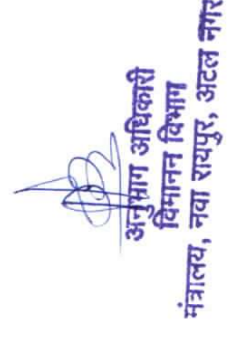 अनुभाग अधिकारी
विमानन विभाग
मंत्रालय, नवा रायपुर, अटल नगर